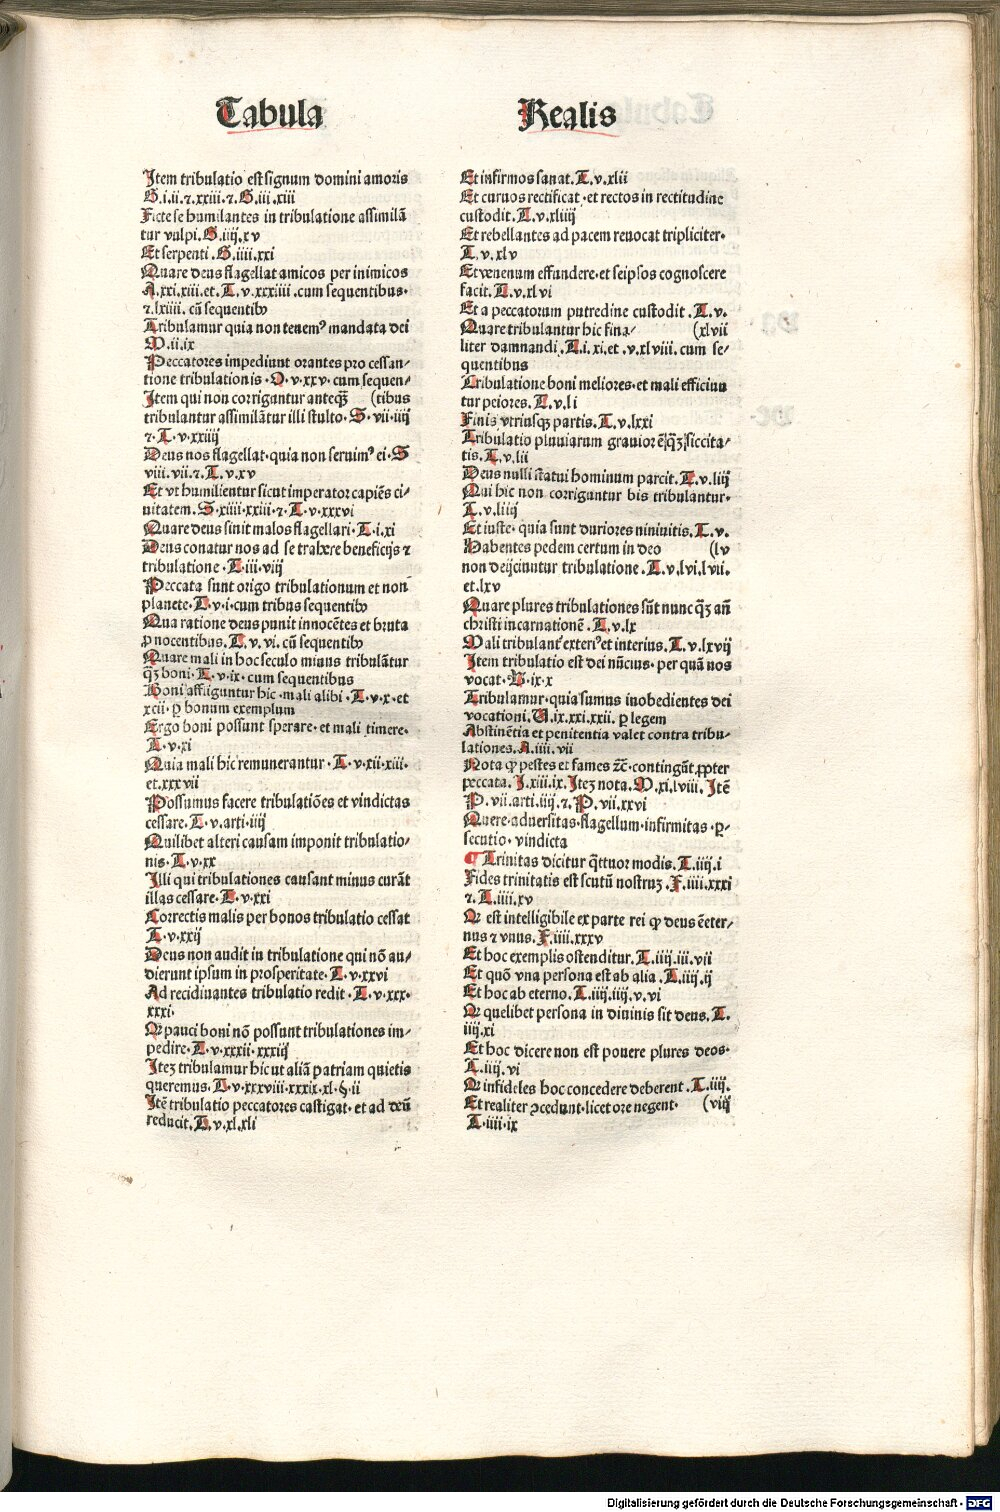 Tabula
Realis
Item tribulatio est signum domini amoris
G.i.ii.⁊.xxiii.⁊.G.iii.xiii
Ficte se humilantes in tribulatione assimilā
tur vulpi.G.iiij.xv
Et serpenti.G.iiii.xxi
Quare deus flagellat amicos per inimicos
A.xxi.xiii.et.T.v.xxxiiii.cum sequentibus.
⁊.lxiiii. cū sequentibꝰ
Tribulamur quia non tenemꝰ mandata dei
M.ii.ix
Peccatores impediunt orantes pro cessan-
tione tribulationis.O.v.xxv.cum sequen-
Item qui non corriguntur anteq̄ȝ (tibus
tribulantur assimilātur illi stulto.S.vii.iiij
⁊.T.v.xxiiij
Deus nos flagellat.quia non seruimꝰ ei.S
viii.vii.⁊.T.v.xv
Et vt humilientur sicut imperator capiēs ci-
uitatem.S.xiiii.xxiii.⁊.T.v.xxxvi
Quare deus sinit malos flagellari.T.i.xi
Deus conatur nos ad se trahere beneficijs ⁊
tribulatione.T.iii.viij
Peccata sunt origo tribulationum et non
planete.T.v.i.cum tribus sequentibꝰ
Qua ratione deus punit innocētes et bruta
ꝓ nocentibus.T.v.vi.cū sequentibꝰ
Quare mali in hoc seculo minus tribulātur
q̄ȝ boni.T.v.ix.cum sequentibus
Boni affliguntur hic.mali alibi.T.v.x.et
xcii.ꝑ bonum exemplum
Ergo boni possunt sperare.et mali timere.
T.v.xi
Quia mali hic remunerantur.T.v.xii.xiii.
et.xxxvii
Possumus facere tribulatiōes et vindictas
cessare.T.v.arti.iiij
Quilibet alteri causam imponit tribulatio-
nis.T.v.xx
Illi qui tribulationes causant minus curāt
illas cessare.T.v.xxi
Correctis malis per bonos tribulatio cessat
T.v.xxij
Deus non audit in tribulatione qui nō au-
dierunt ipsum in prosperitate.T.v.xxvi
Ad recidiuantes tribulatio redit.T.v.xxx.
xxxi.
Qꝛ pauci boni nō possunt tribulationes im-
pedire.T.v.xxxii.xxxiij
Iteȝ tribulamur hic ut aliā patriam quietis
queremus.T.v.xxxviii.xxxix.xl.§.ii
Itē tribulatio peccatores castigat.et ad deū
reducit.T.v.xl.xli
Et infirmos sanat.T.v.xlii
Et curuos rectificat.et rectos in rectitudine
custodit.T.v.xliiij
Et rebellantes ad pacem reuocat tripliciter.
T.v.xlv
Et venenum effundere.et seipsos cognoscere
facit.T.v.xlvi
Et a peccatorum putredine custodit.T.v.
Quare tribulantur hic fina- (xlvii
liter damnandi.T.i.xi.et.v.xlviii.cum se-
quentibus
Tribulatione boni meliores.et mali efficiun
tur peiores.T.v.li
Finis vtriusqȝ partis.T.v.lxxi
Tribulatio pluuiarum grauior ē q̄ȝ siccita-
tis.T.v.lii
Deus nulli statui hominum parcit.T.v.liij
Qui hic non corriguntur bis tribulantur.
T.v.liiij
Et iuste.quia sunt duriores niniuitis.T.v.
Habentes pedem certum in deo (lv
non deijciuntur tribulatione.T.v.lvi.lvii.
et.lxv
Quare plures tribulationes sūt nunc q̄ȝ añ
christi incarnationē.T.v.lx
Mali tribulant̄ exteriꝰ et interius.T.v.lxvij
Item tribulatio est dei nūcius.per quā nos
vocat.V.ix.x
Tribulamur.quia sumus inobedientes dei
vocationi.V.ix.xxi.xxii.ꝑ legem
Abstinētia et penitentia valet contra tribu-
lationes.A.iiii.vii
Nota ꝙ pestes et fames ⁊c̄.contingūt ꝓpter
peccata.I.xiii.ix.Iteȝ nota.M.xi.lviii.Itē
P.vii.arti.iiij.⁊.P.vii.xxvi
Quere.aduersitas.flagellum.infirmitas.ꝑ-
secutio.vindicta
¶ Trinitas dicitur q̄ttuor modis.T.iiij.i
Fides trinitatis est scutū nostruȝ.F.iiii.xxxi
⁊.T.iiii.xv
Qꝛ est intelligibile ex parte rei ꝙ deus ē eter-
nus ⁊ vnus.F.iiii.xxxv
Et hoc exemplis ostenditur.T.iiij.iii.vii
Et quō vna persona est ab alia.T.iiij.ij
Et hoc ab eterno.T.iiij.iiij.v.vi
Qꝛ quelibet persona in diuinis sit deus.T.
iiij.xi
Et hoc dicere non est ponere plures deos.
T.iiij.vi
Qꝛ infideles hoc concedere deberent.T.iiij.
Et realiter ꝯcedunt.licet ore negent. (viij
T.iiii.ix
Digitalisierung gefördert durch die Deutsche Forschungsgemeinschaft - DFG